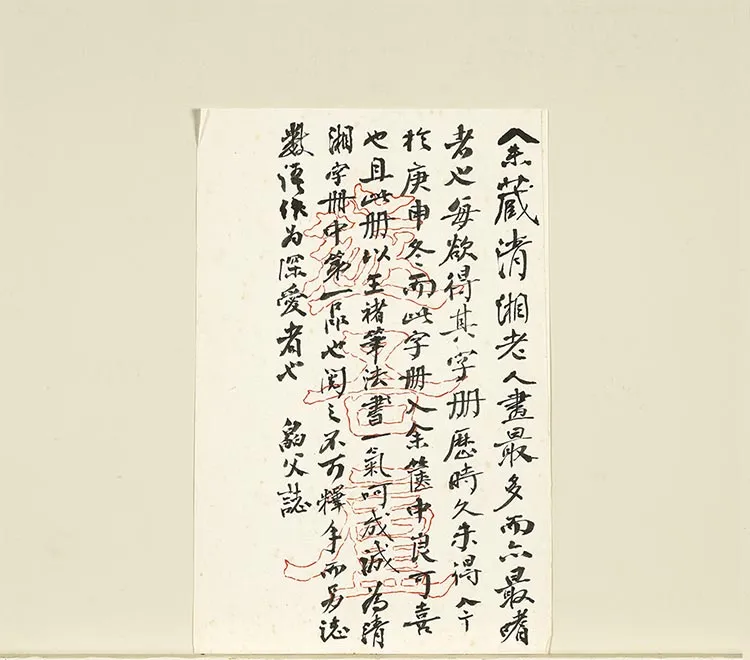 余藏清湘老人畫最多而亦最嗜
者也每欲得其字冊歷時久未得今
於庚申冬而此字冊入余篋中良可喜
也且此冊以王褚筆法書一氣呵成誠為清
湘字冊中第一品也閱之不可釋手而另誌
數語作為深愛者也 父誌